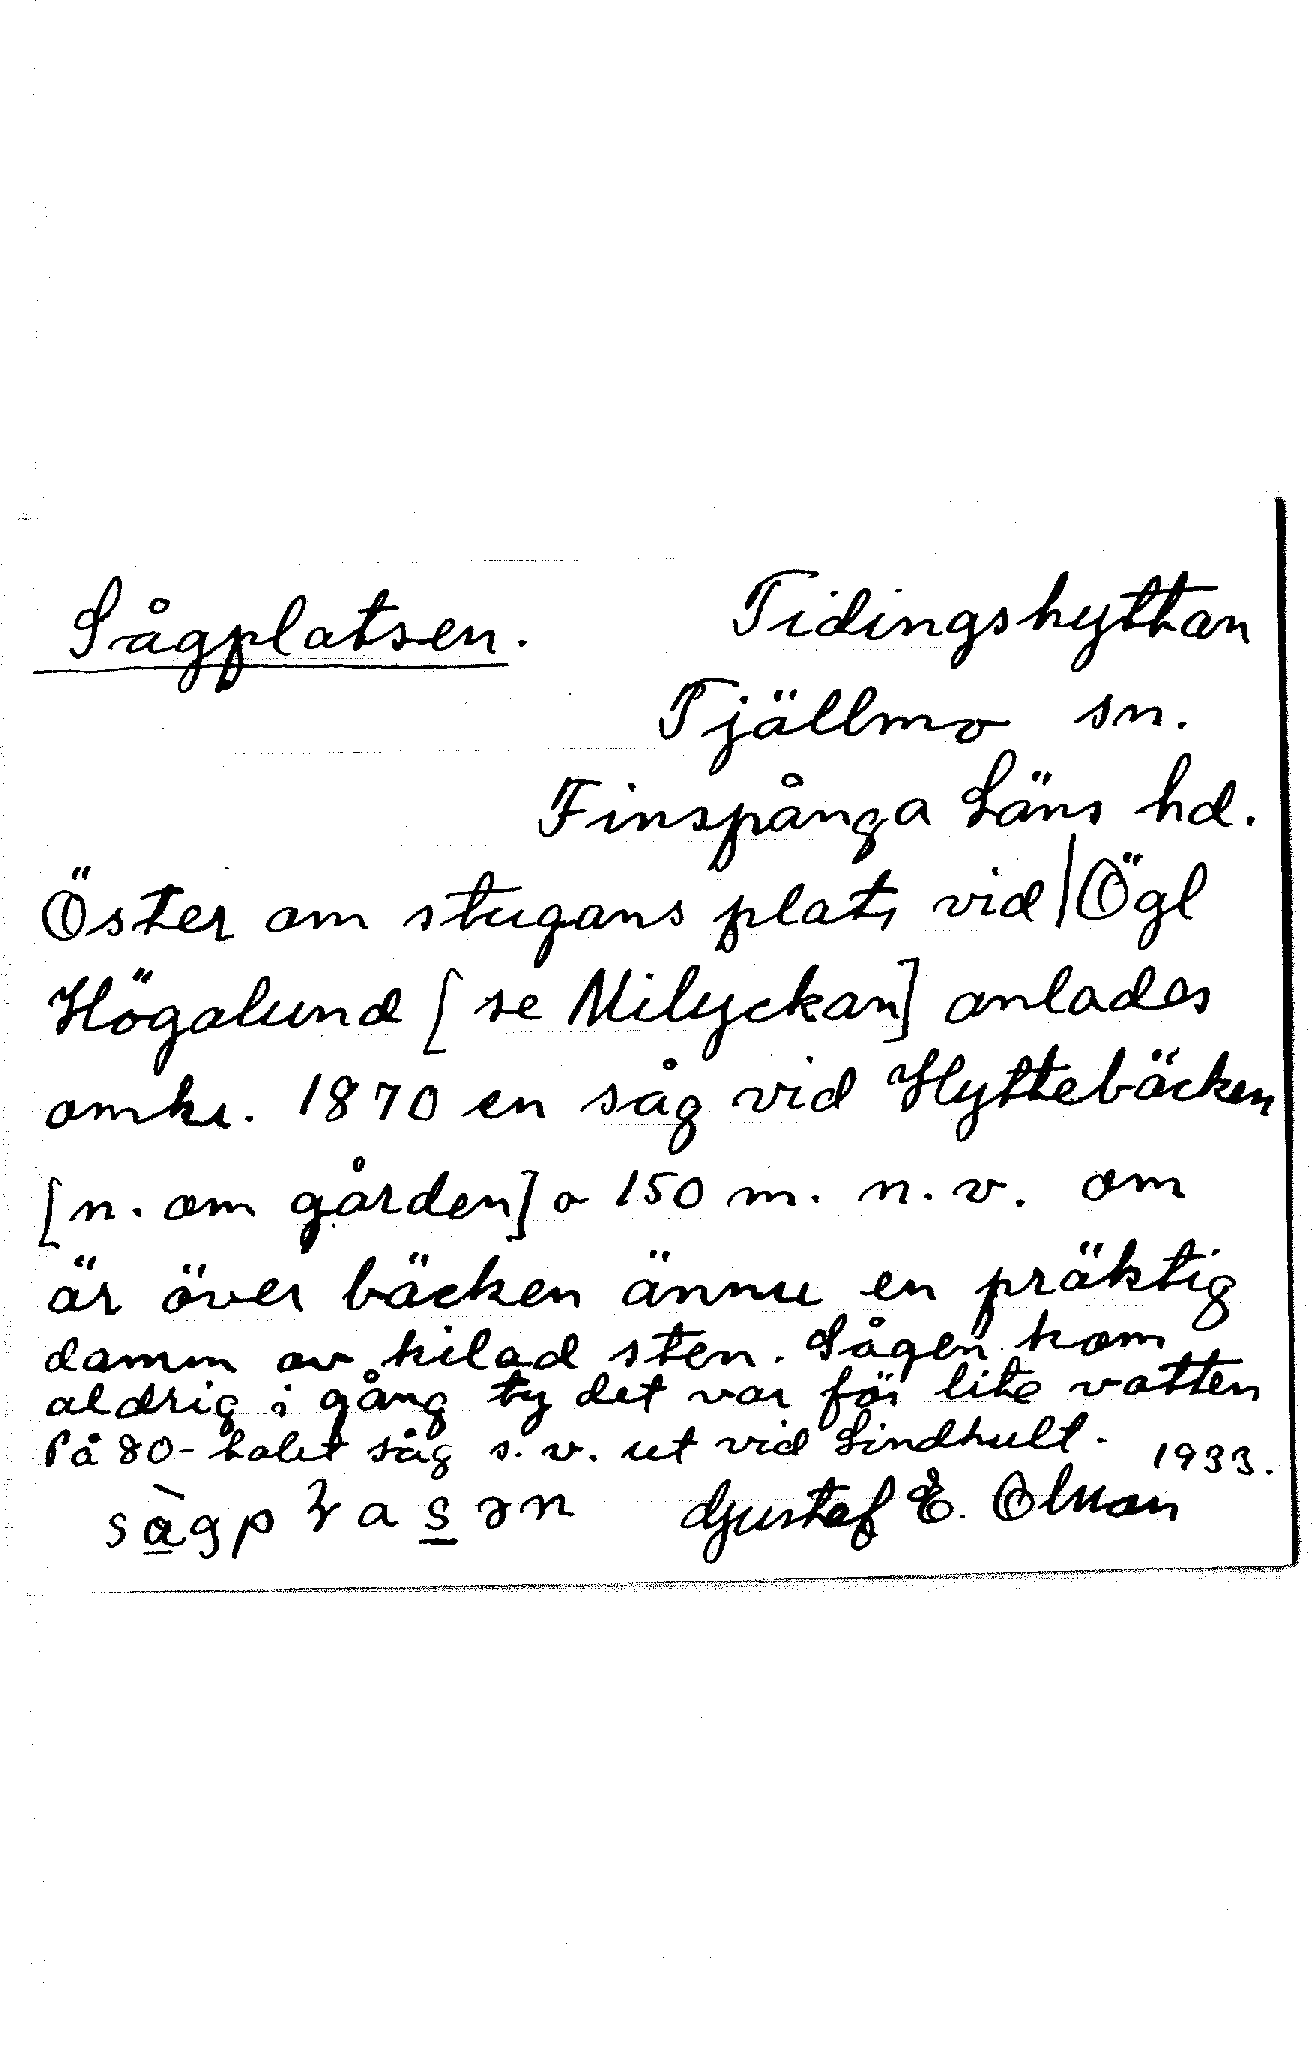 Sågplatsen. Tidingshyttan
Tjällmo sn.
Finspånga Läns hd.
Öster om stugans plats vid | Ögl
Högalund [se Milyckan] anlades
omkr. 1870 en såg vid Hyttebäcken
[n. om gården] o 150 m. n. v. om
är över bäcken ännu en präktig
damm av kilad sten. Sågen kom
aldrig i gång ty det var för lite vatten
På 80-talet såg s. v. ut vid Lindhult. 1933.
Gustaf E. Olman